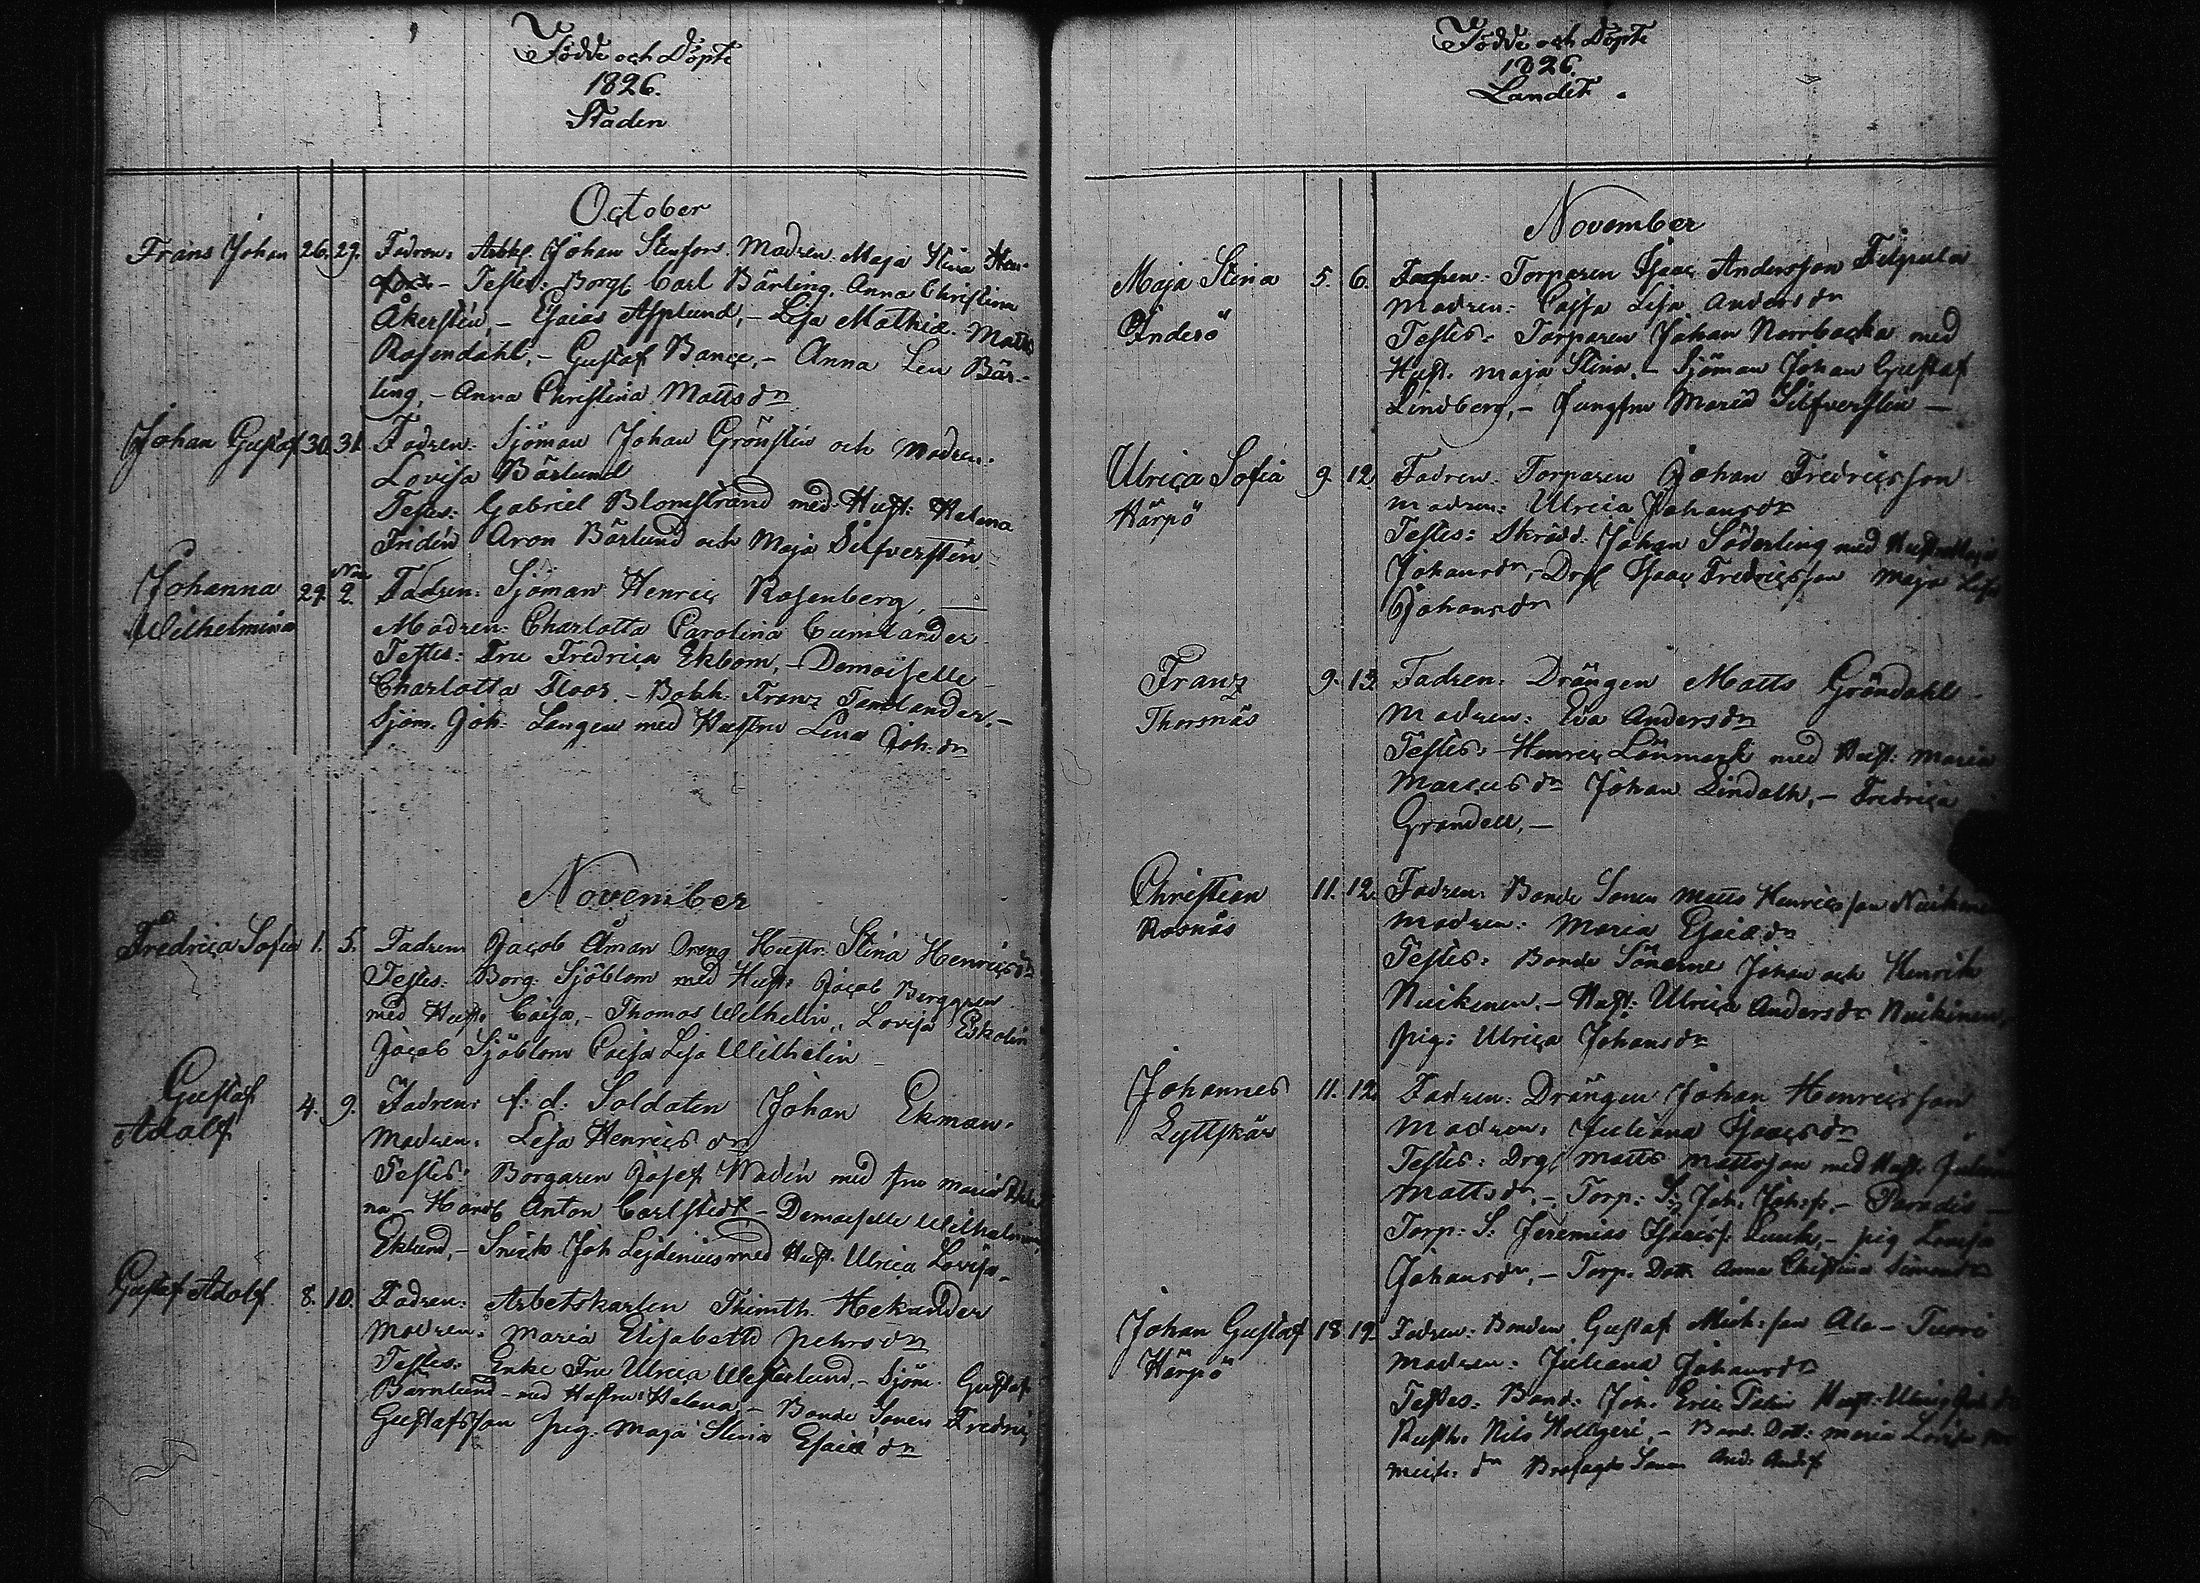 Födde och Döpte
1826.
Staden
October
Frans Johan 26. 29. Fadren: Arbkl. Johan Stenfors. Madren. Maja Stina Sten-
fors - Testes: Borg. Carl Bärling, Anna Christina
Åkerstén, - Esaias Asplund, - Lisa Mathiæ. Matts
Rosendahl, - Gustaf Bange, - Anna Len Bär-
ling, - Anna Christina Mattsdr
Johan Gustaf 30. 31. Fadren: Sjöman Johan Grönstén och Madren.
Lovisa Bärlund
Testes: Gabriel Blomstrand med Hust: Helena
Fridén Aron Bärlund och Maja Silfverstén
Johanna 29. Nov 2. Fadren: Sjöman Henric Rosenberg,
Wilhelmina
Madren: Charlotta Carolina
Testes: Fru Fredrica Ekbom, - Demoiselle
Charlotta Floor. - Bokh. Franz Tamlander, -
Sjöm. Joh. Langen med Hustru Lena Joh. dr
November
Fredrica Sofia 1. 5. Fadren Jacob Åman Dreng Hustr. Stina Henricsdr
Testes: Borg. Sjöblom med Hust: Jacob Berggren
med Hust: Caisa, - Thomas Wilhelin, Lovisa Eskolin
Jacob Sjöblom Caisa Lisa Wilhelin -
Gustaf
Adolf 4. 9. Fadren: f. d. Soldaten Johan Ekman.
Madren. Lisa Henrics dr
Testes: Borgaren Josef Wadén med fru Maria
na - Handl Anton Carlstedt - Demoiselle Wilhelmina
Eklund, - Snick Joh Lejdenius med Hust. Ulrica Lovisa -
Gustaf Adolf 8. 10. Fadren: Arbetskarlen Thimth. Hekander
Madren: Maria Elisabeth Pehrsdr
Testes: Enke Fru Ulrica Westerlund, - Sjöm. Gustaf
Bärnlund - med Hustru Helena - Bonde Sonen Fredric
Gustafsson pig. Maja Stina Esaiæ dr
Födde och Döpte
1826.
Landet.
November
Maja Stina 5. 6. Fadren: Torparen Isaac Andersson Filpula
Änderö
Madren: Cajsa Lisa Andersdr
Testes: Torparen Johan Norrbacka med
Hust. Maja Stina. - Sjöman Johan Gustaf
Lindberg, - Jungfru Maria Silfverstén -
Ulrica Sofia 9. 12. Fadren. Torparen Johan Fredricsson
Härpö
Madren: Ulrica Johansdr
Testes: Skrädd. Johan Söderling med Hustru Maja
Johansdr, - Drg Isaac Fredricsson Maja Lisa
Johansdr
Franz 9. 12. Fadren: Drängen Matts Gröndahl -
Thorsnäs
Madren: Eva Andersdr
Testes: Henric Lönmark med Hust: Maria
Marcusdr Johan Lindath, - Fredrica
Grandell, -
Christian 11. 12. Fadren: Bonde Sonen Matts Henricsson Nuikinen
Rosnäs
Madren: Maria Esaiædr
Testes: Bonde Sönerne Johan och Henrik
Nuikinen. - Hust: Ulrica Andersdr Nuikinen,
pig: Ulrica Johansdr
Johannes 11. 12. Fadren: Drängen Johan Henricsson
Lyttskär
Madren: Juliana Isaacsdr
Testes: Drg Matts Mattsson med Hust: Juliana
Mattsdr. - Torp: S: Joh: Joh:s: - Paradis -
Torp: S: Jeremias Isaacs: Luuk, - pig Lovisa
Johansdr, - Torp. Dott. Anna Christina Simonsdr
Johan Gustaf 18. 19. Fadren: Bonden Gustaf Mich:son Ala-Tuori
Härpö
Madren: Juliana Johansdr
Testes: Bond. Joh. Eric Hust: Ulrica Joh dr
Rusth. Nils Hollgeri, - Bond. Dott: Maria Lovisa
Mich: dr Sonen And: And:s